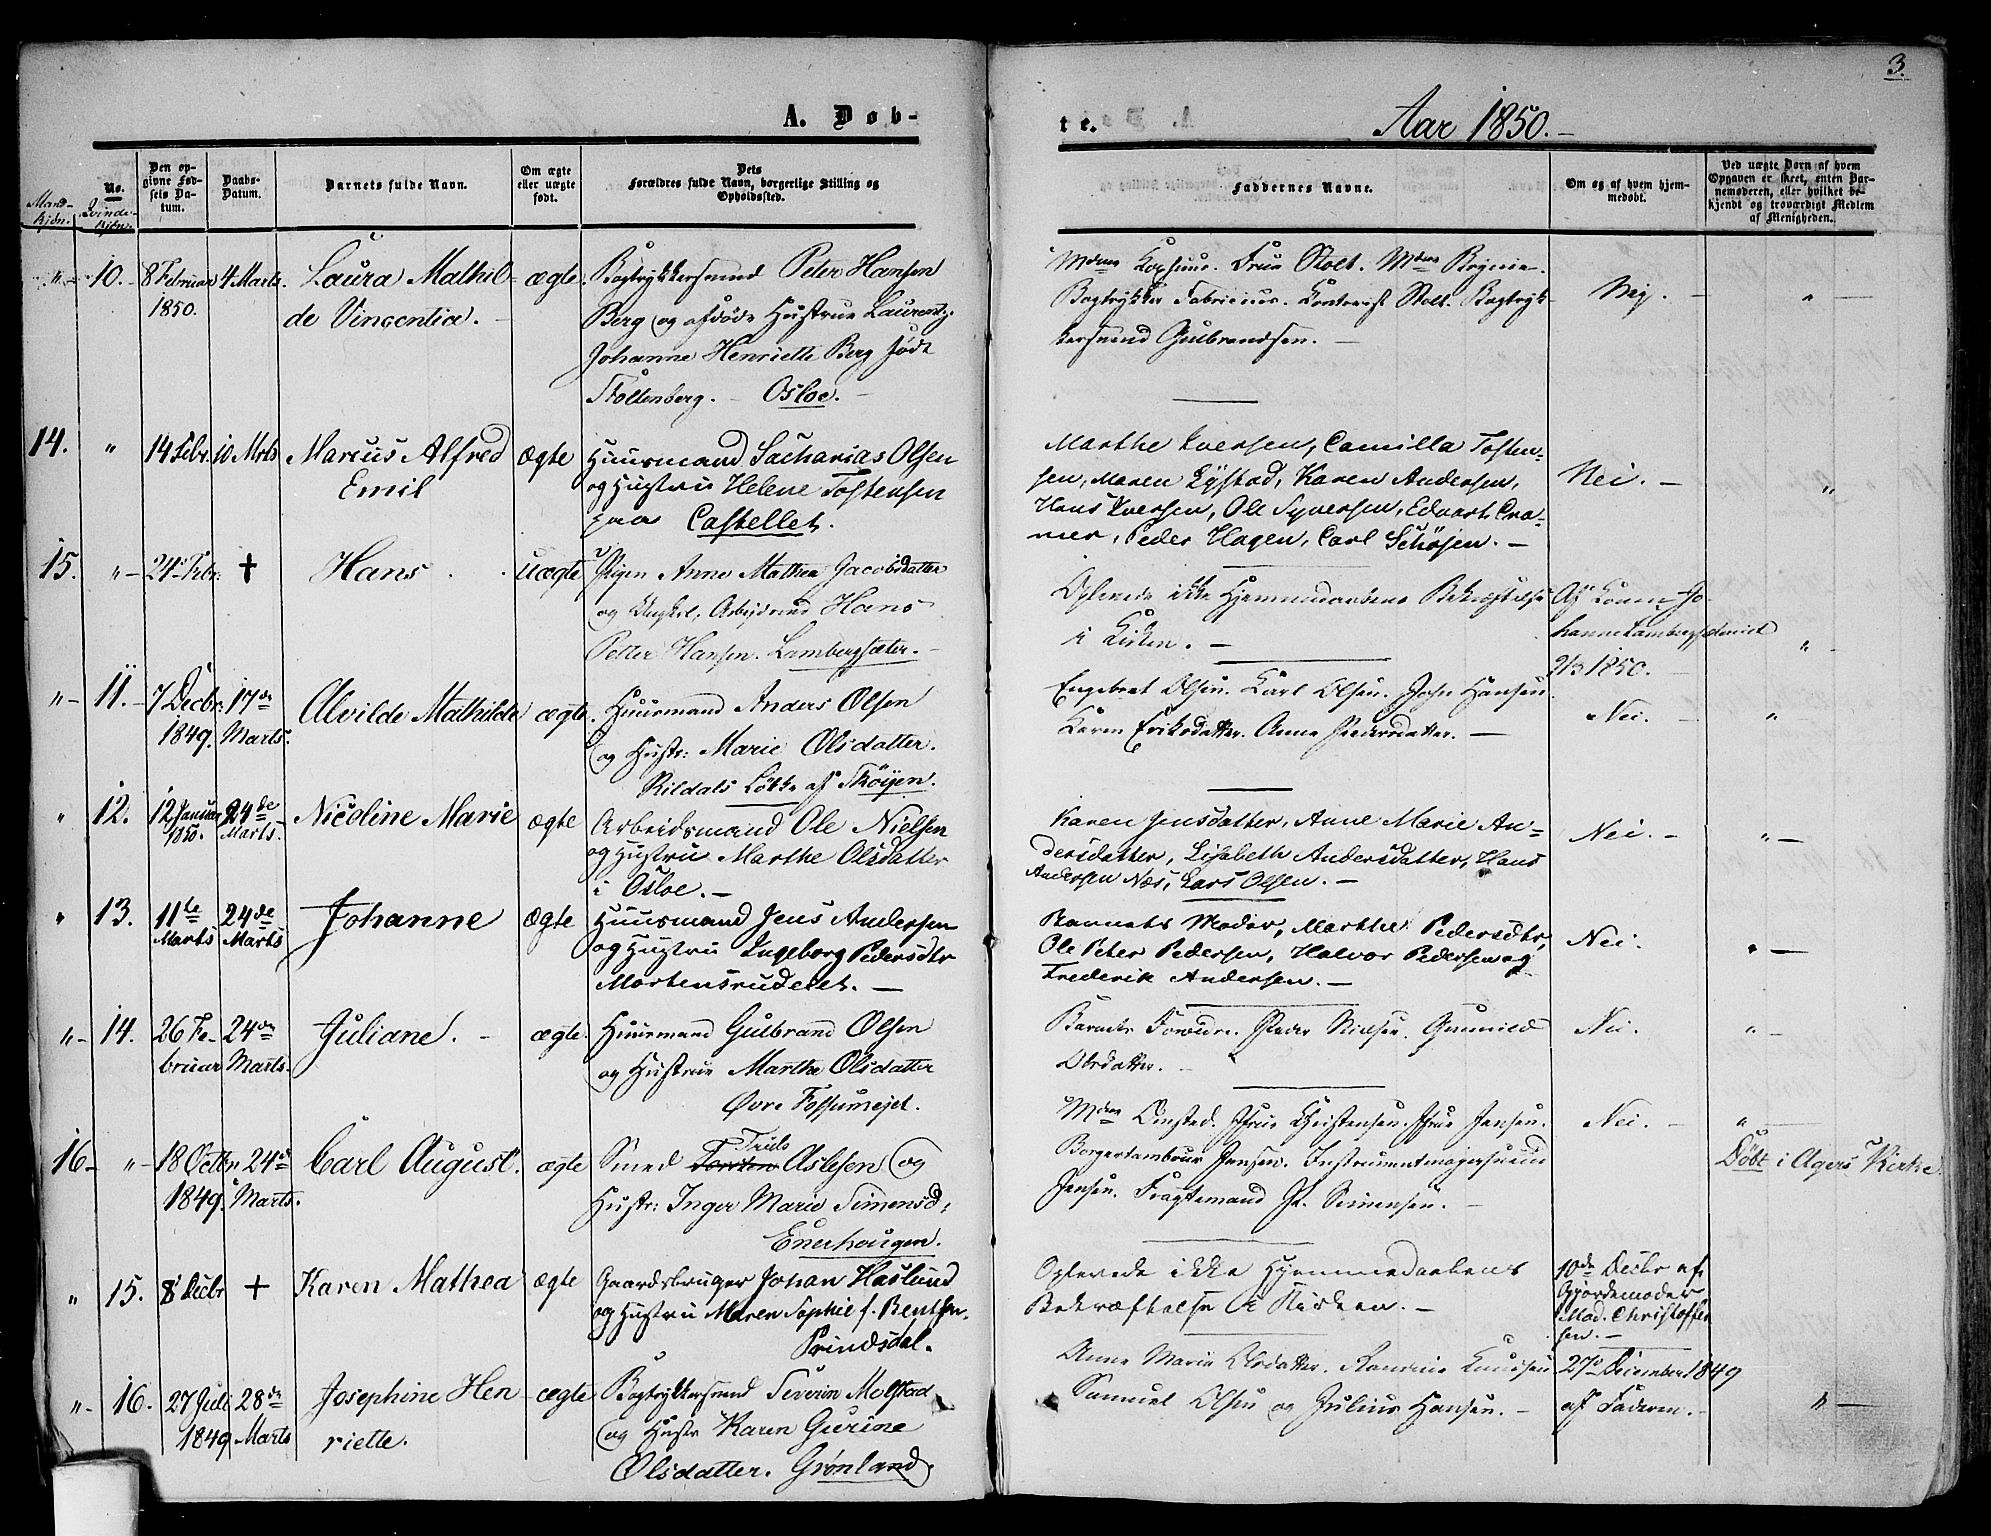 3.
A. Døb-
te.
Aar 1850.-
Mand-
kjön.
No.
Qvinde-
kjön.
Den op-
givne Fød-
sels Da-
tum.
Daabs-
Datum.
Barnets fulde Navn.
Om ægte
eller uægte
født.
Dets
Forældres fulde Navn, borgerlige Stilling og
Opholdssted.
Faddernes Navne.
Om og af hvem hjem-
medøbt.
Ved uægte Børn af hvem
Opgaven er skeet, enten Bar-
nemoderen, eller hvilket be-
kjendt og troværdigt Medlem
af Menigheden.
" 10. 8 Februar 4 Marts. Laura Mathil- ægte. Bogtrykkersvend Peter Hansen
1850. de Vincentia. - Berg og afdøde Hustrue Laurenty.
Johanne Henriette Berg født
Stoltenberg. - Osloe. -
Mdme Kopsund. Frue Stolt. Mdme
Bogtrykker Fabricius. Contorist Stolt. Bogtryk-
kersvend Gulbrandsen. -
Nej. - "
14. " 14 Febr. 10 Mrts Marcus Alfred ægte Huusmand Sacharias Olsen
Emil og Hustru Helene Tostensen
paa Castellet.
Marthe Iversen, Camilla Tosten-
sen, Maren Lystad, Karen Andersen,
Hans Iversen, Ole Syversen, Edvart Cra-
mer, Peder Hagen, Carl Schøjen. -
Nei. - "
15. " 24 Febr. + Hans. uægte Pigen Anne Mathea Jacobsdatter
og Ungkl. Arbejdsmd Hans
Petter Hansen. Lambergsæter. -
Oplevede ikke Hjemmedaabens Bekræftelse
i Kirken. -
Af Konen Jo-
hanne Lambergsæterei
2/3 1850. "
" 11. 7 Decbr. 17de Alvilde Mathilde ægte. Huusmand Anders Olsen
1849. Marts. og Hustr: Marie Olsdatter.
Rildals Løkke af Skøijen.
Engebret Olsen. Carl Olsen. John Hansen
Karen Eriksdatter. Anne Pedersdatter. -
Nei. - "
" 12. 12 Januar 24de Nicoline Marie ægte Arbeidsmand Ole Nielsen
1850. Marts. og Hustru Marthe Olsdatter
i Osloe. -
Karen Jensdatter, Anne Marie An-
dersdatter, Lisabeth Andersdatter, Hans
Andersen Næs, Lars Olsen. -
Nei. - "
" 13. 11te 24de Johanne ægte Huusmand Jens Andersen
Marts Marts og Hustru Ingeborg Pedersdtr
Mortensrudeiet. -
Barnets Moder, Marthe Pedersdtr,
Ole Peter Pedersen, Halvor Pedersen og
Frederik Andersen. -
Nei. " -
" 14. 26 Fe- 24de Juliane. - ægte. Huusmand Gulbrand Olsen
bruar Marts. og Hustrue Marthe Olsdatter
Øvre Fossumejet.
Barnets Forældre. Peder Nielsen. Gunnild
Olsdatter. -
Nei. " -
16 - " 18 Octbr 24de Carl August. ægte Smed Torsten Trids Aslesen og
1849. Marts. Hustr: Inger Marie Simensd,
Enerhougen.
Mdme Omsted. Jfrue Christensen. Jfrue Jensen.
Borgertambour Jensen. Instrumentmagersvend
Jensen. Fragtemand P. Simensen. -
Nei. - "
Døbt i Agers Kirke
" 15. 8 Decbr + Karen Mathea ægte Gaardsbruger Johan Haslund
og Hustru Maren Sophie f. Bentsen.
Prindsdal.
Oplevede ikke Hjemmedaabens
Bekræftelse i Kirken. -
10de Decbr af
Gjordemoder
Mad. Christoffer-
sen. -
" 16. 27 Juli 28de Josephine Hen- ægte Bogtrykkersvend Severin Molstad
1849 Marts riette. og Hustr Karen Gurine
Olsdatter. Grønland.
Anne Marie Olsdatter. Knudsen
Samuel Olsen og Julius Hansen. -
27de December 1849
af Faderen. - " -